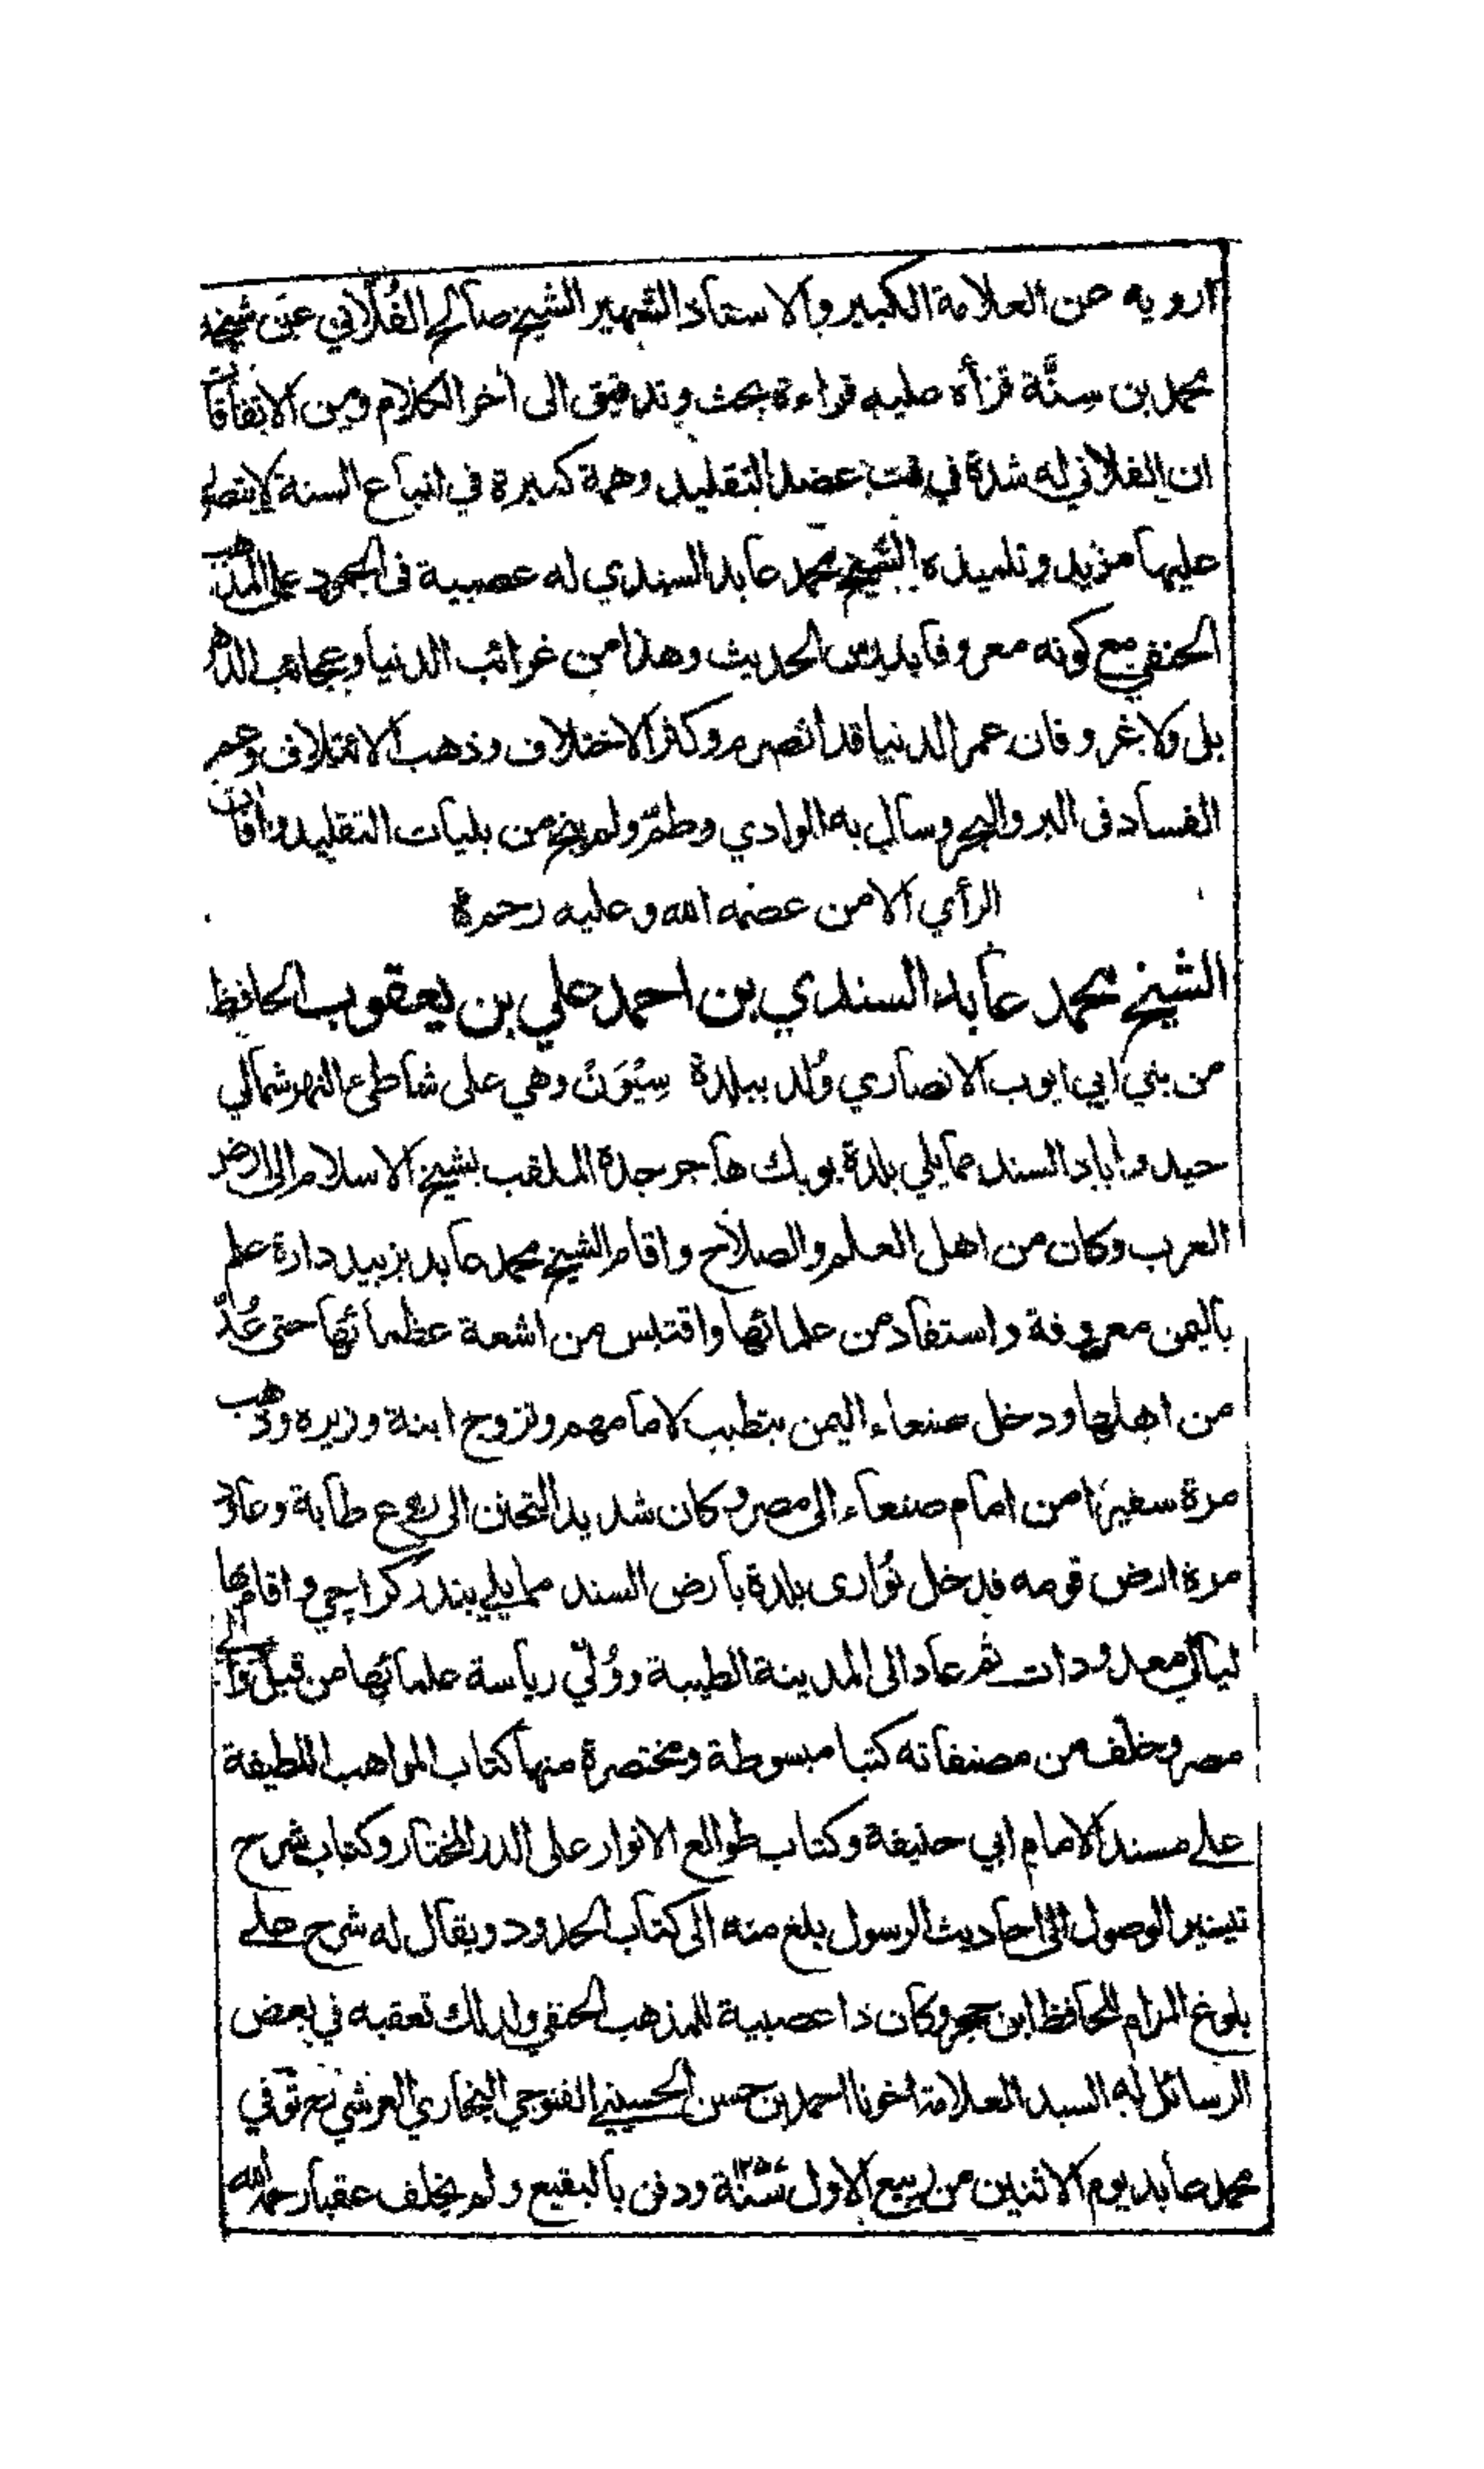 ارويه عن العلامة الكبير والاستاذ الشهير الشيخ صالح الفُلّاني عن شيخه
محمد بن سِنَّة قرأه عليه قراءة بحث وتدقيق الى آخر الكلام ومن الاتفاقات
ان الفلاني له شدة في فت عضد التقليد وهمة كبيرة في اتباع السنة لا يتصور
عليها مزيد وتلميذه الشيخ محمد عابد السندي له عصبية فى الجمود على المذهب
الحنفي مع كونه معروفا بدرس الحديث وهذا من غرائب الدنيا وعجائب الدهر
بل ولا غرو فان عمر الدنيا قد انصرم وكثر الاختلاف وذهب الائتلاف وعم
الفساد فى البر والبحر وسال به الوادي وطمّ ولم ينج من بليات التقليد وآفات
الرأي الا من عصمه الله وعليه رحمة
الشيخ محمد عابد السندي بن احمد علي بن يعقوب الحافظ
من بني ابي ايوب الانصاري وُلد ببلدة سِيْوَنْ وهي على شاطئ النهر شمالي
حيدراباد السند مما يلي بلدة بوبك هاجر جده الملقب بشيخ الاسلام الى ارض
العرب وكان من اهل العلم والصلاح واقام الشيخ محمد عابد بزبيد دارة علم
باليمن معروفة واستفاد من علمائها واقتبس من اشعة عظمائها حتى عُدّ
من اهلها ودخل صنعاء اليمن يتطبب لامامهم وتزوج ابنة وزيره وذهب
مرة سفيرًا من امام صنعاء الى مصر وكان شديد التحنن الى ربوع طابة وعاود
مرة ارض قومه فدخل نوارى بلدة بارض السند مما يلي بندر كراچي واقام بها
ليالي معدودات ثم عاد الى المدينة الطيبة ووُلّي رياسة علمائها من قبل والي
مصر وخلف من مصنفاته كتبا مبسوطة ومختصرة منها كتاب المواهب اللطيفة
على مسند الامام ابي حنيفة وكتاب طوالع الانوار على الدر المختار وكتاب شرح
تيسير الوصول الى احاديث الرسول بلغ منه الى كتاب الحدود ويقال له شرح على
بلوغ المرام للحافظ ابن حجر وكان ذا عصبية للمذهب الحنفي ولذلك تعقبه في بعض
الرسائل له السيد العلامة اخونا احمد بن حسن الحسيني القنوجي البخاري العرشي رح توفي
محمد عابد يوم الاثنين من ربيع الاول سنة ١٢٥٧ ودفن بالبقيع ولم يخلف عقبا رحمه الله